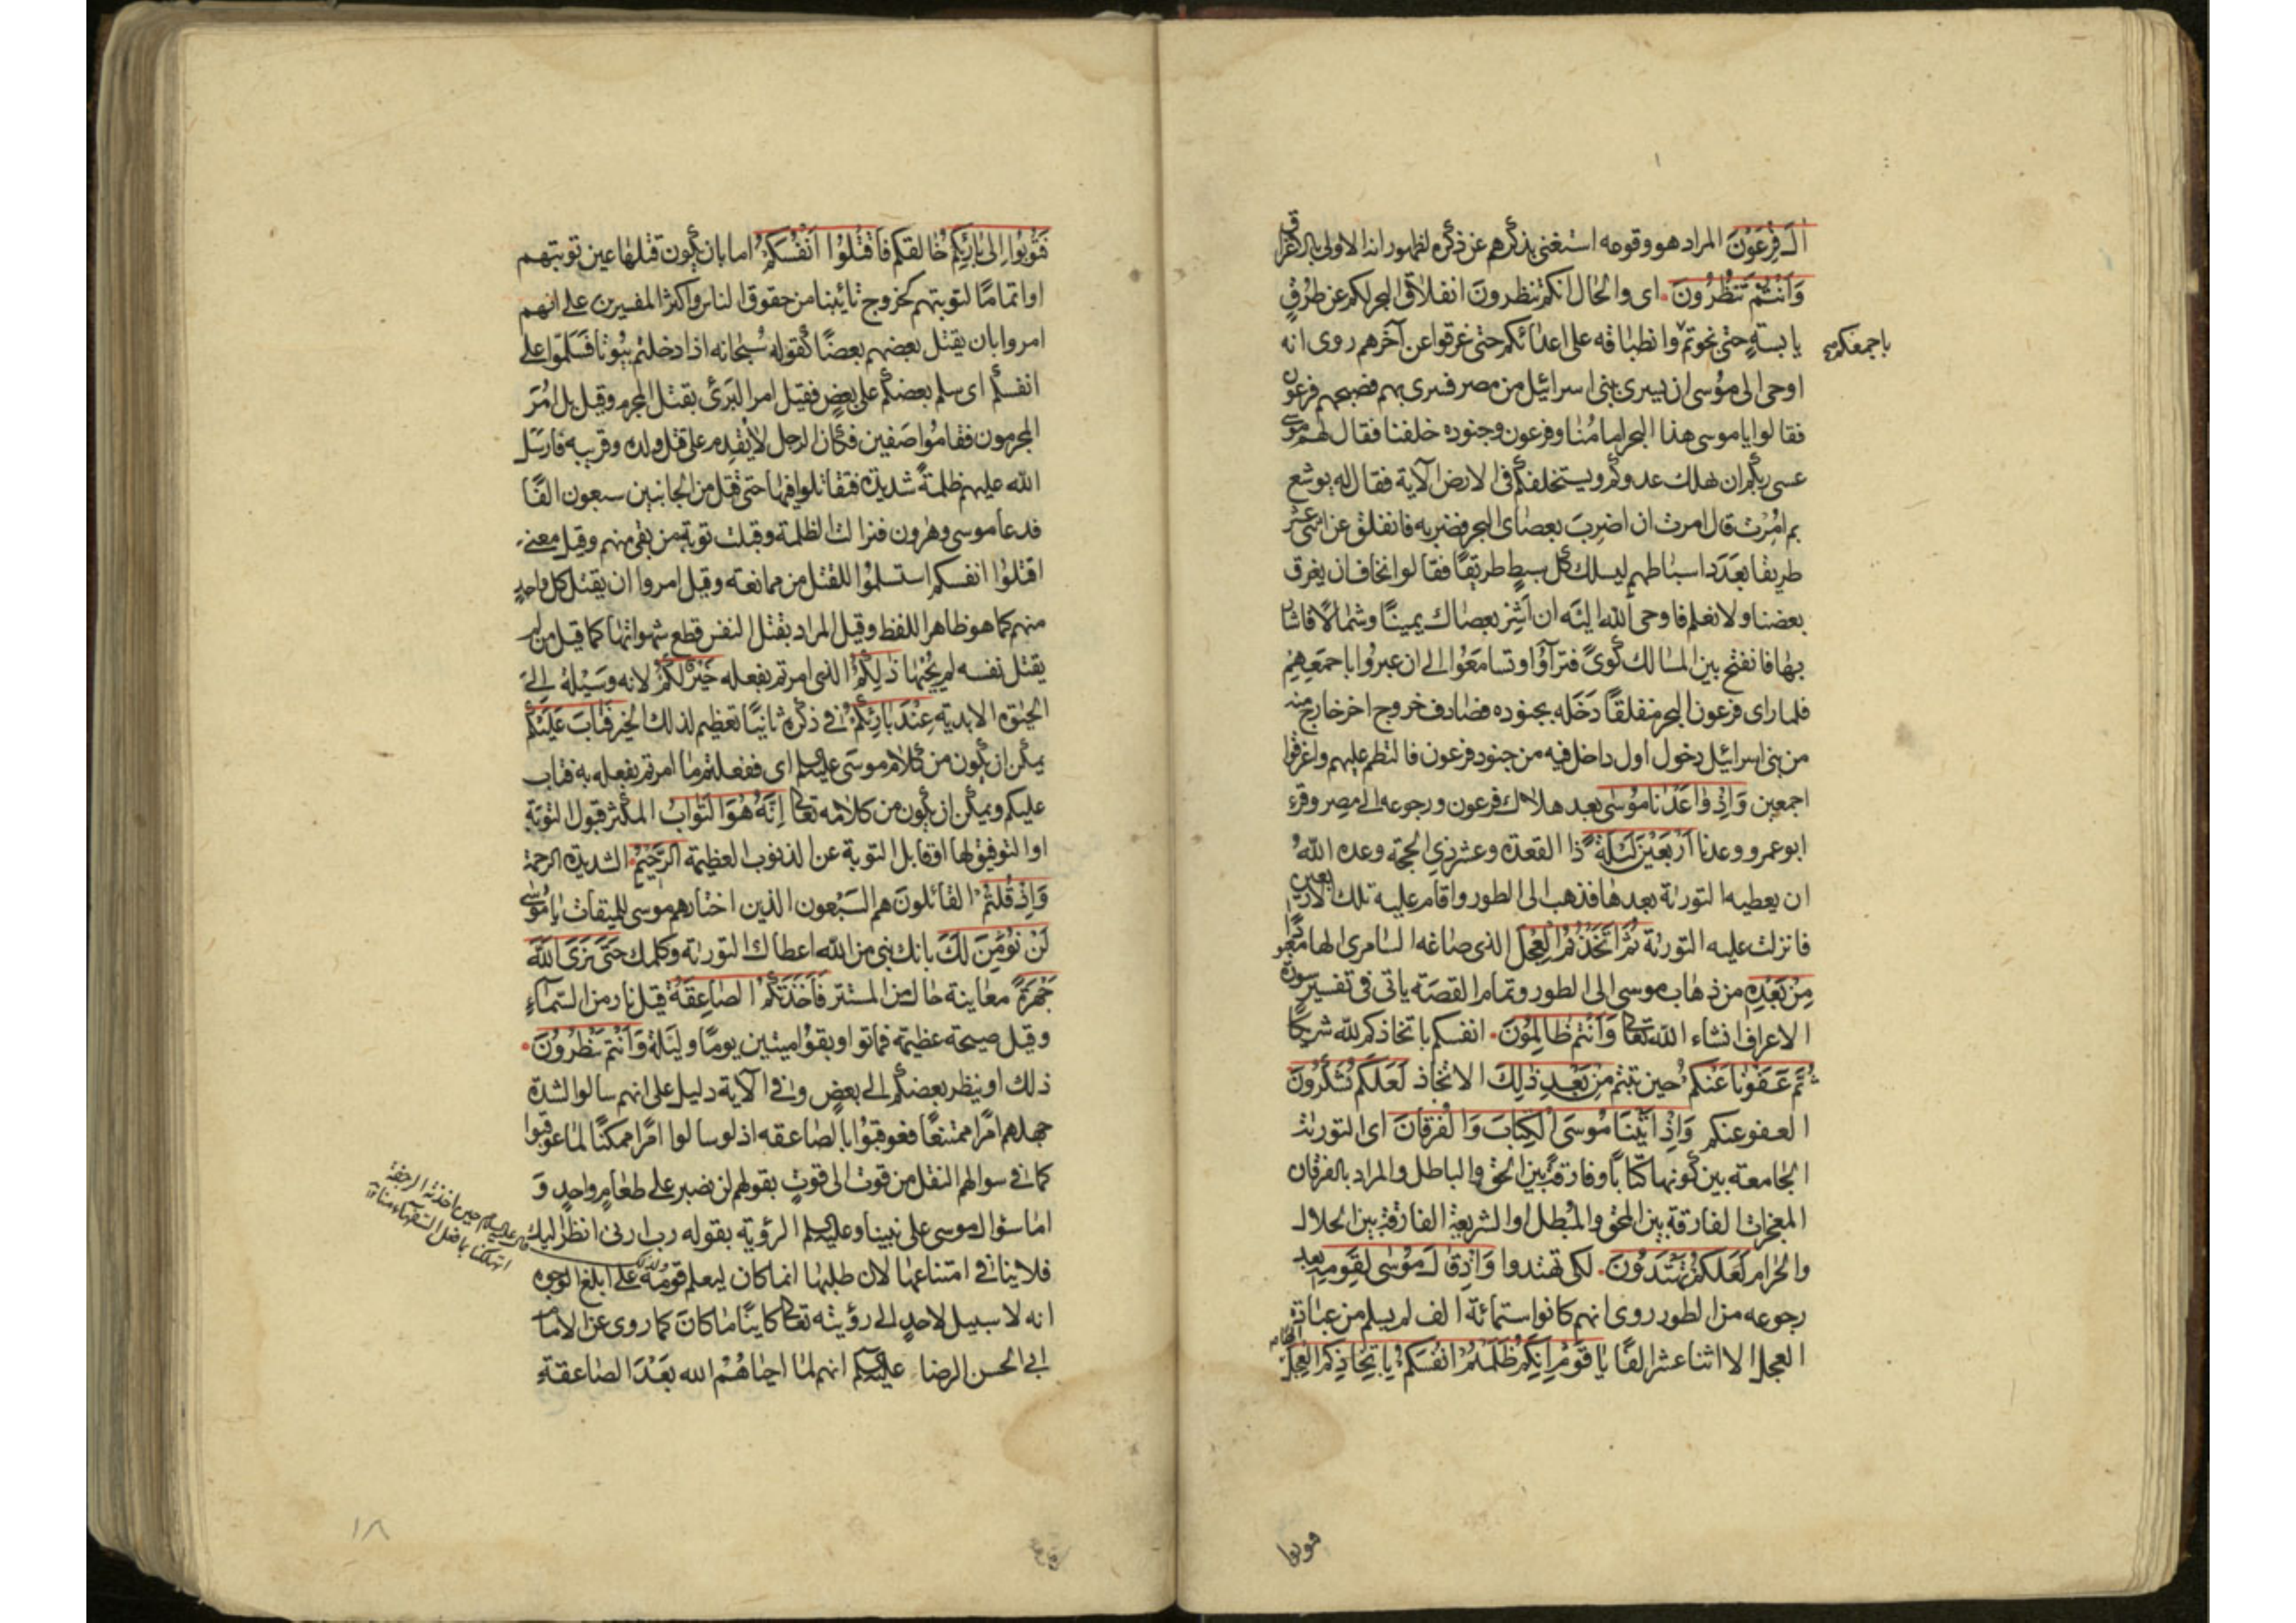 ال فِرْعَوْنَ المراد هو وقومه استغنى بذكرهم عن ذكره لظهور انه الاولى بالاغراق
وَاَنْتُمْ تَنْظُرُونَ اى والحال انكم تنظرون انفلاق البحر لكم عن طرقٍ
يابسةٍ حتى نجوتم وانطباقه على اعدائكم حتى غرقوا عن آخرهم روى انه
باجمعكم صح
اوحى الى موسى ان يسرى ببنى اسرائيل من مصر فسرى بهم فصبحهم فرعون
فقالوا يا موسى هذا البحر امامنا وفرعون وجنوده خلفنا فقال لهم موسى
عسى ربكم ان يهلك عدوكم ويستخلفكم فى الارض الآية فقال له يوشع
بم امُرْت قال امرت ان اضربَ بعصاى البحر فضربه فانفلق عن اثنى عشر
طريقا بعَدَد اسباطهم ليسلك كل سبطٍ طريقًا فقالوا نخاف ان يغرق
بعضنا ولا نعلم فاوحى الله اليَه ان اَشِرْ بعصاك يمينًا وشمالًا فاشار
بها فانفتح بين المسالك كُوىً فترآؤا وتسامَعُوا الى ان عبروا باجمَعِهِمْ
فلما راى فرعون البحر منفلقًا دَخَله بجنوده فصادف خروج اخر خارج منه
من بنى اسرائيل دخول اول داخل فيه من جنود فرعون فالتطم عليهم واغرقوا
اجمعين وَاِذْ وَاعَدْنَا مُوسٰى بعد هلاك فرعون ورجوعه الى مصر وقرء
ابو عمرو وعدنا اَرْبَعيْنَ لَيْلَةً ذا القعدة وعشر ذي الحجة وعده اللهُ
ان يعطيه التورٰية بعدها فذهب الى الطور واقام عليه تلك الاربعين
فانزلت عليه التورٰية ثُمَّ اتَّخَذْتُمُ الْعِجْلَ الذى صاغه السامرى الها معبودا
مِنْ بَعْدِهِ من ذهاب موسى الى الطور وتمام القصَة ياتى فى تفسير سورة
الاعراف انشاء الله تعالى وَاَنْتُم ظَالِمُونَ انفسكم باتخاذكم لله شريكًا
ثُمَّ عَفَوْنَا عَنْكُمْ حين تبتم مِنْ بَعْدِ ذٰلِكَ الاتخاذ لَعَلَكُم تَشْكُرُونَ
العفو عنكم وَاِذْ اتَيْنَا مُوسَى الْكِتَابَ وَالْفُرقَانَ اى التورٰية
الجامعة بين كونها كتابًا وفارقة بين الحق والباطل والمراد بالفرقان
المعجزات الفارقة بين المحق والمبطل او الشريعة الفارقة بين الحلال
والحرام لَعَلَكُمْ تَهْتَدُوْنَ لكى تهتدوا وَاِذْ قَالَ مُوسٰى لِقَوْمِهِ بعد
رجوعه من الطور روى انهم كانوا ستمائة الف لم يسلم من عبادة
العجل الا اثنا عشر الفًا يَا قَوْمِ اِنَكُمْ ظَلَمْتُمْ اَنْفُسَكُمْ بِاتِّخَاذِكُمُ الْعِجْلَ
فتوبوا
فَتُوبُوا اِلىٰ بَارِئِكُمْ خالقكم فَاقْتُلُوْا اَنْفُسَكُمْ اما بان يكون قتلها عين توبتهم
او اتمامًا لتوبتهم كخروج تائبنا من حقوق الناس واكثر المفسرين على انهم
امروا بان يقتل بعضهم بعضًا كقوله سُبحانه اذا دخلتم بُيُوتا فسَلمّوا على
انفسكم اى سلم بعضكم على بعضٍ فقيل امر البَرىُ بقتل المجرم وقيل بل امُرَ
المجرمون فقامُوا صَفين فكان الرجل لا يُقدِم على قتل ولده وقريبه فارسَل
الله عليهم ظلمةً شديدة فتقاتلوا فيها حتى قتل من الجانبين سبعون الفًا
فدعا موسى وهرون فزالت الظلمة وقبلت توبة من بقى منهم وقيل معنى
اقتلوا انفسكم استسلمُوا للقتل من ممانعته وقيل امروا ان يقتل كل واحدٍ
منهم كما هو ظاهر اللفظ وقيل المراد بقتل النفس قطع شهواتها كما قيل من لم
يقتل نفسه لم يُحْيها ذٰلِكُمْ الذى امرتم بفعله خَيْرٌ لَكُمْ لانه وسَيْلة اِلى
الحيوٰة الابديّة عِنْدَ بَارِئِكُمْ فى ذكره ثانيًا تعظيم لذلك الخير فَتَابَ عَلَيْكُمْ
يمكن ان يكون من كلام موسَى عليه السلم اى ففعلتم ما امرتم بفعله به فتاب
عليكم ويمكن ان يكون من كلامه تعالى اِنَّهُ هُوَ التَّوابُ المكثر قبول التوبَة
او التوفيق لها او قابل التوبة عن الذنوب العظيمة الرَّحيْمُ الشديد الرحمة
وَاِذْ قُلْتُمْ القائلونَ هم السَبْعون الذين اختارهم موسى للميقات يَا مُوسٰى
لَنْ نُؤْمِنَ لَكَ بانك نبى من الله اعطاك التورٰية وكلمك حَتّى نَرَى اللهَ
جَهْرَةً معاينة حال من المستتر فَاَخَذَتْكُمُ الصَاعِقَةُ قيل نار من السَماءِ
وقيل صيحة عظيمة فماتوا وبقوُا ميتين يومًا وليَلةً وَاَنْتُمْ تَنْظُرُوْنَ
ذلك او ينظر بعضكم الى بعضٍ وفى الآية دليل على انهم سالوا لشدة
جهلهم امًرا ممتنعًا فعوقبُوْا بالصَاعقه اذ لو سالوا امًرا ممكنًا لما عوقبوا
كما فى سوالهم النقل من قوت الى قوتٍ بقولهم لن نصبر على طعامٍ واحدٍ وَ
اما سئوال موسى على نبينا وعليه السلم الرؤية بقوله رب ارنى انظر اليك
فلا ينافى امتناعها لان طلبها انما كان ليعلم قومُه على ابلغ الوجوه
قال عليه السلم حين اخذته الرجفة
اتهلكنا بما فعل السفهاء منا
انه لا سبيل لاحدٍ الى رؤيته تعالى كاينًا ما كانَ كما روى عن الامام
ابى الحسن الرضا عليه السلم انهم لما احياهُمْ الله بَعْدَ الصاعقةِ
١٨